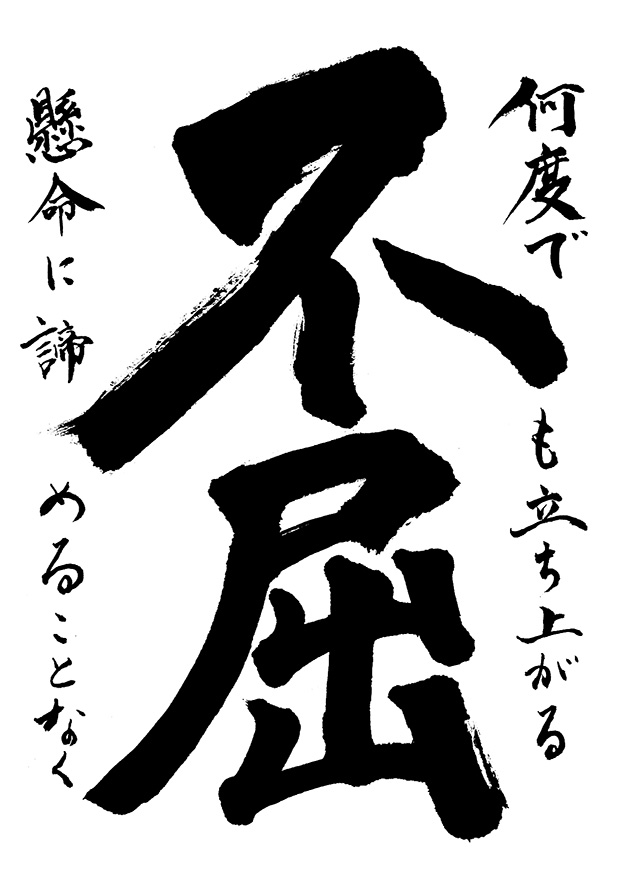 何度でも立ち上がる
不屈
懸命に諦めることなく